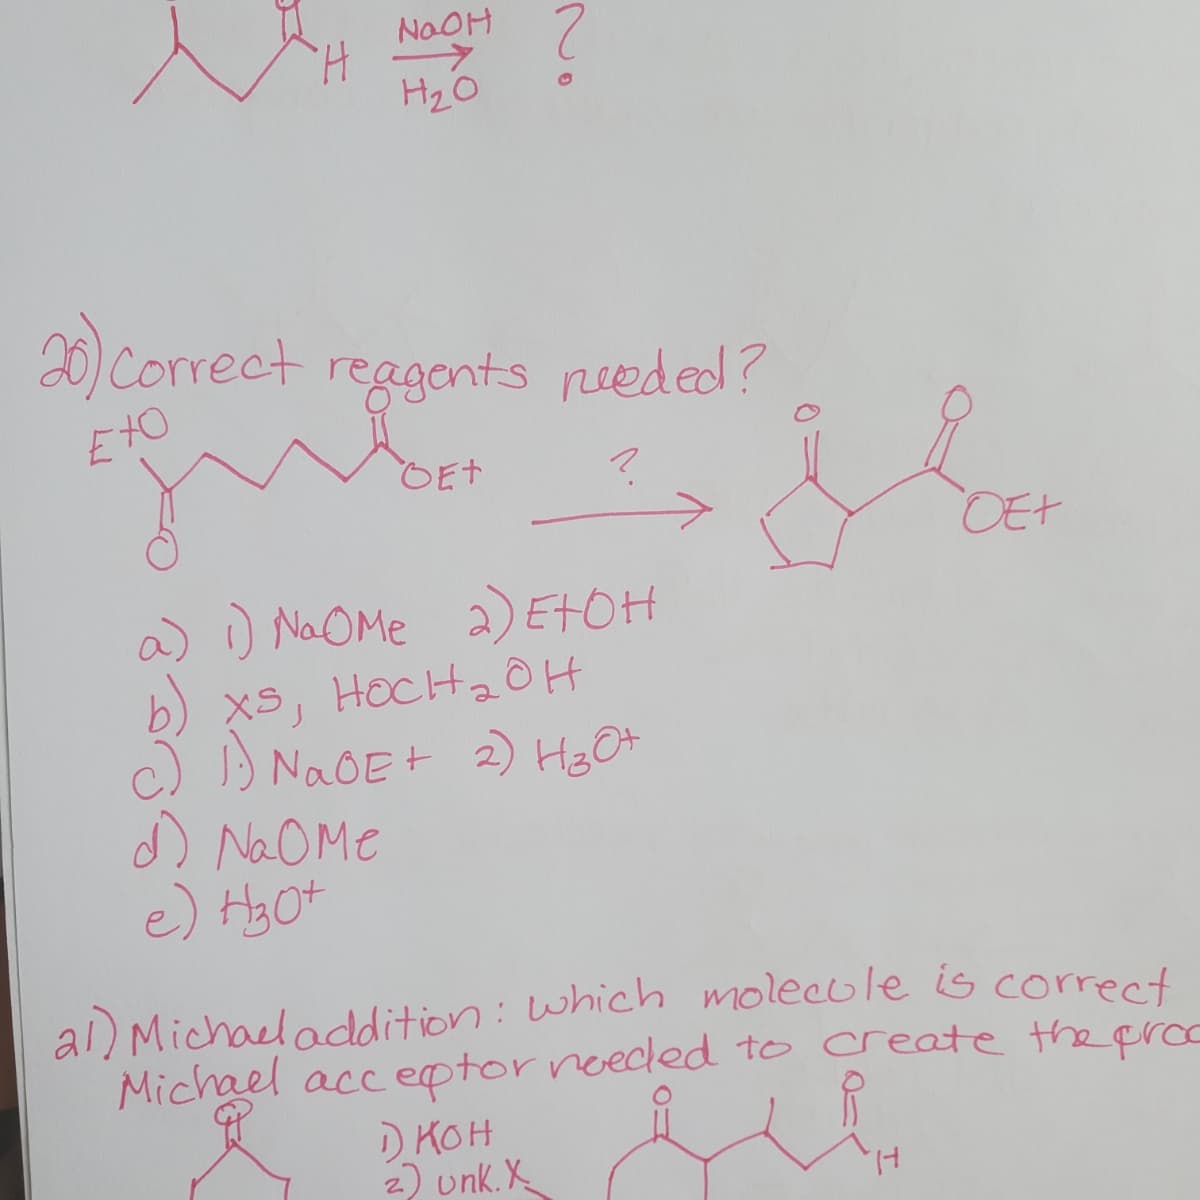 NaOH ?
H
H₂O
20) Correct reagents needed?
EtO O O O
OEt ? OEt
O
a) 1) NaOMe 2) EtOH
b) xs, HOCH₂OH
c) 1.) NaOEt 2) H₃O+
d) NaOMe
e) H₃O+
21) Michael addition: which molecule is correct
Michael acceptor needed to create the
O O O
1) KOH H
2) unk. X